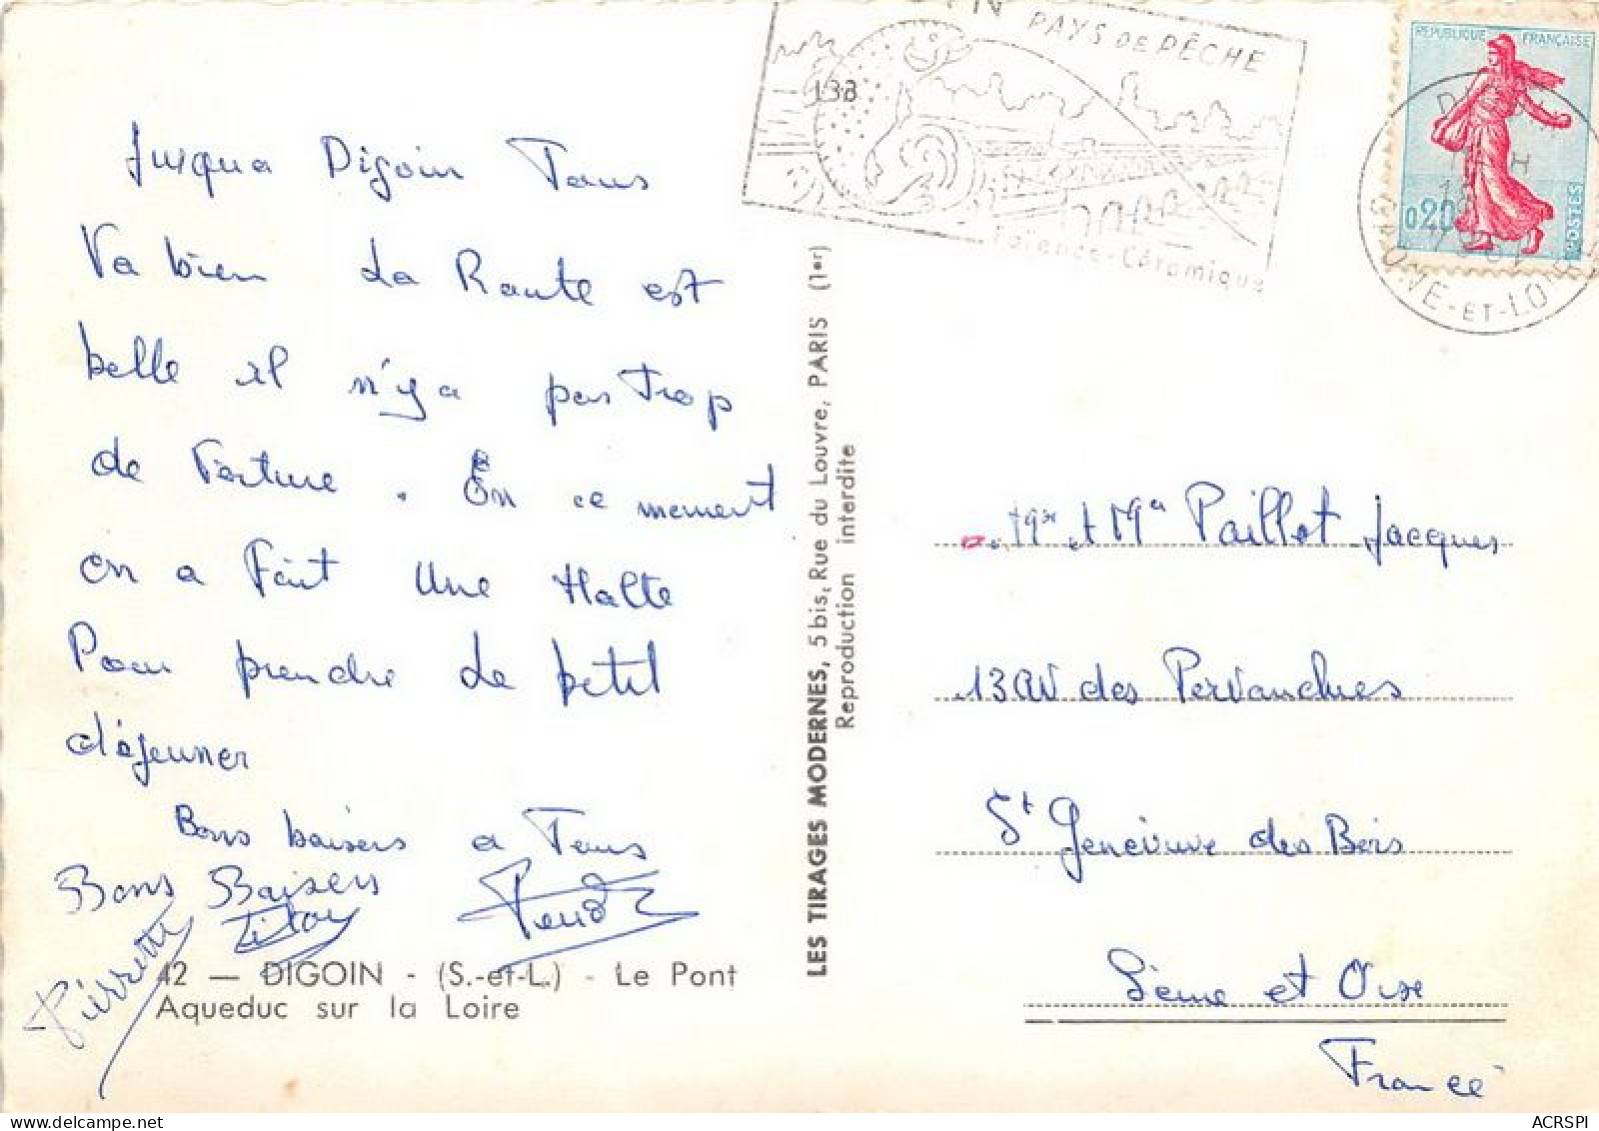 Jusqua Digoin Tous
Va bien La Route est
belle il n'y a pas trop
de Voiture. En ce moment
on a Fait Une Halte
Pour prendre Le petit
déjeuner
Bons baisers a Tous
Bons Baisers
Pierrette
42 — DIGOIN - (S.-et-L.) - Le Pont
Aqueduc sur la Loire
LES TIRAGES MODERNES, 5 bis, Rue du Louvre, PARIS (1er)
Reproduction interdite
PAYS DE PÊCHE
138
Faïence-Céramique
REPUBLIQUE FRANÇAISE
0,20
POSTES
SAONE-ET-LOIRE
Mr et Me Paillot Jacques
13 AV des Pervanches
St Geneviuve des Bois
Seine et Oise
France
ACRSPI